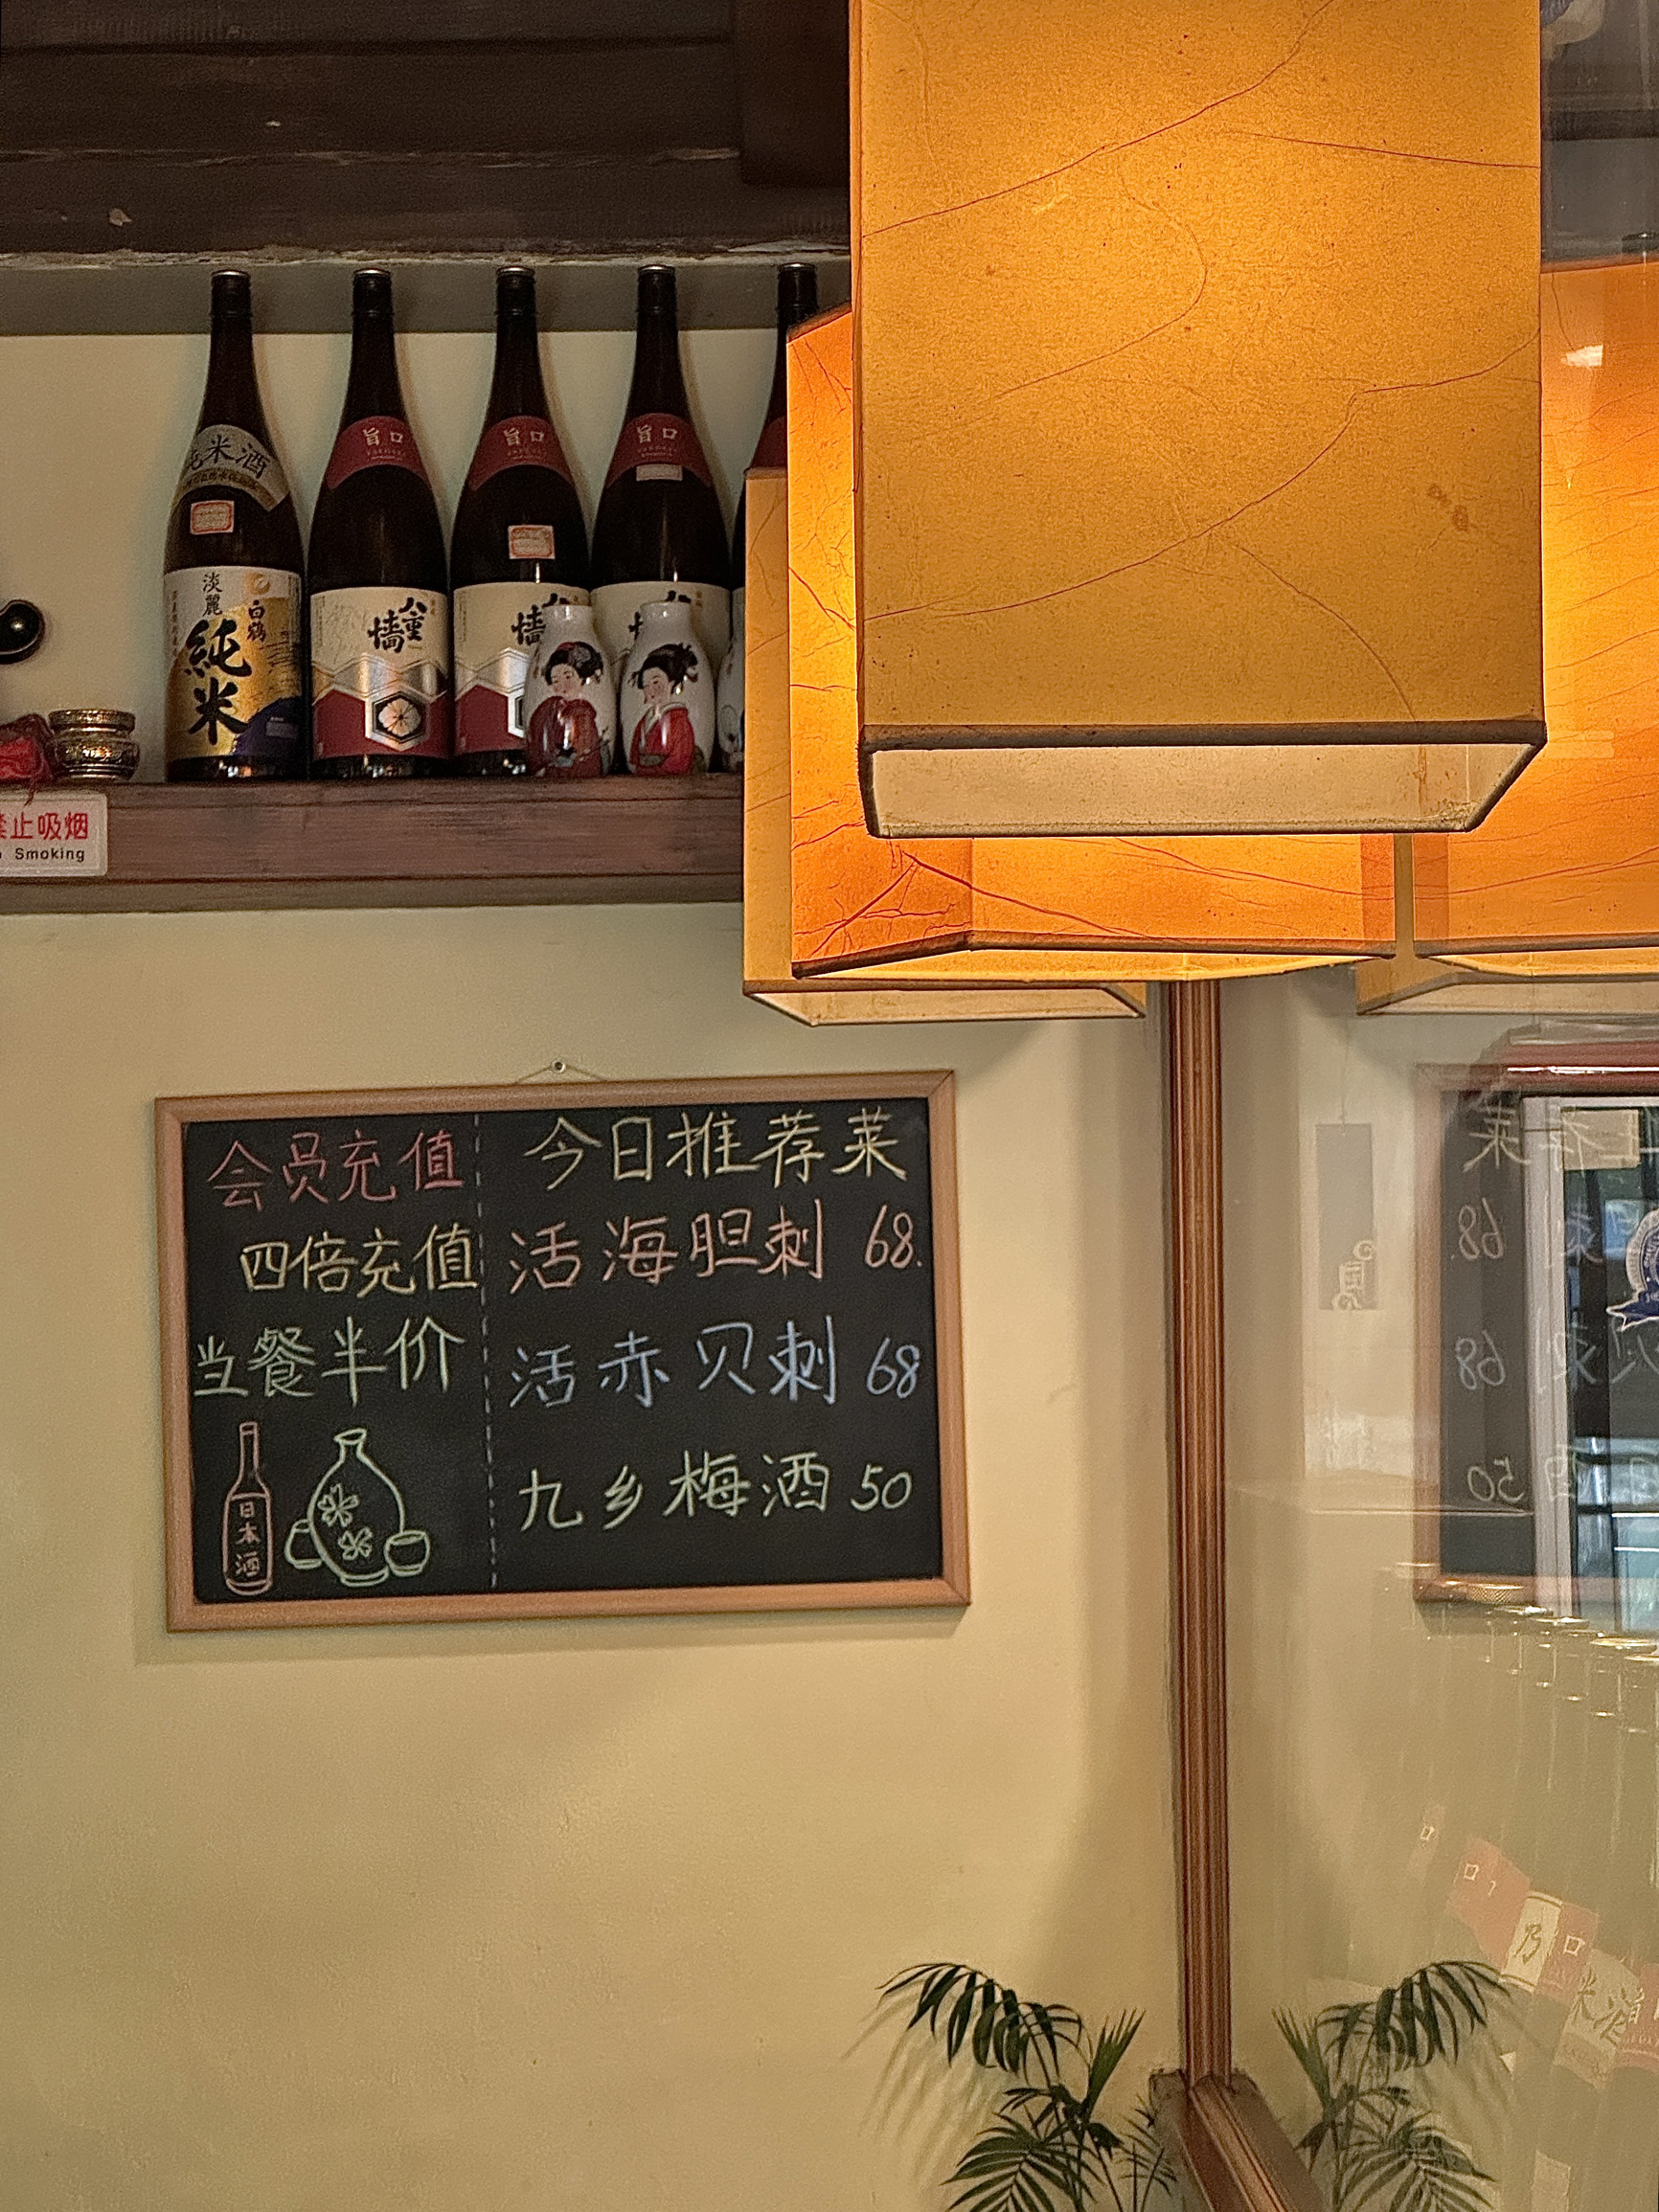 純米酒
淡麗
白鶴
純米
旨口
八重墻
旨口
旨口
禁止吸烟
No Smoking
会员充值
四倍充值
当餐半价
日本酒
今日推荐菜
活海胆刺 68.
活赤贝刺 68
九乡梅酒 50